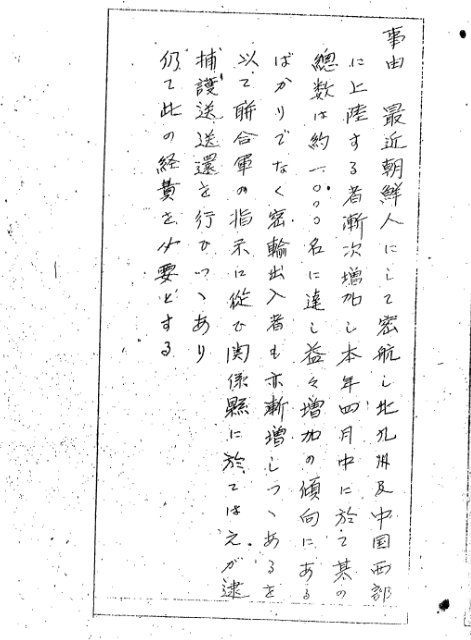 事由　最近朝鮮人にして密航し北九州及中国西部
に上陸する者漸次増加し本年四月中に於て其の
総数は約一〇〇〇名に達し益々増加の傾向にある
ばかりでなく密輸出入者も亦漸増しつゝあるを
以て聯合軍の指示に従ひ関係縣に於ては之が逮
捕護送送還を行ひつゝあり
仍て此の経費を必要とする